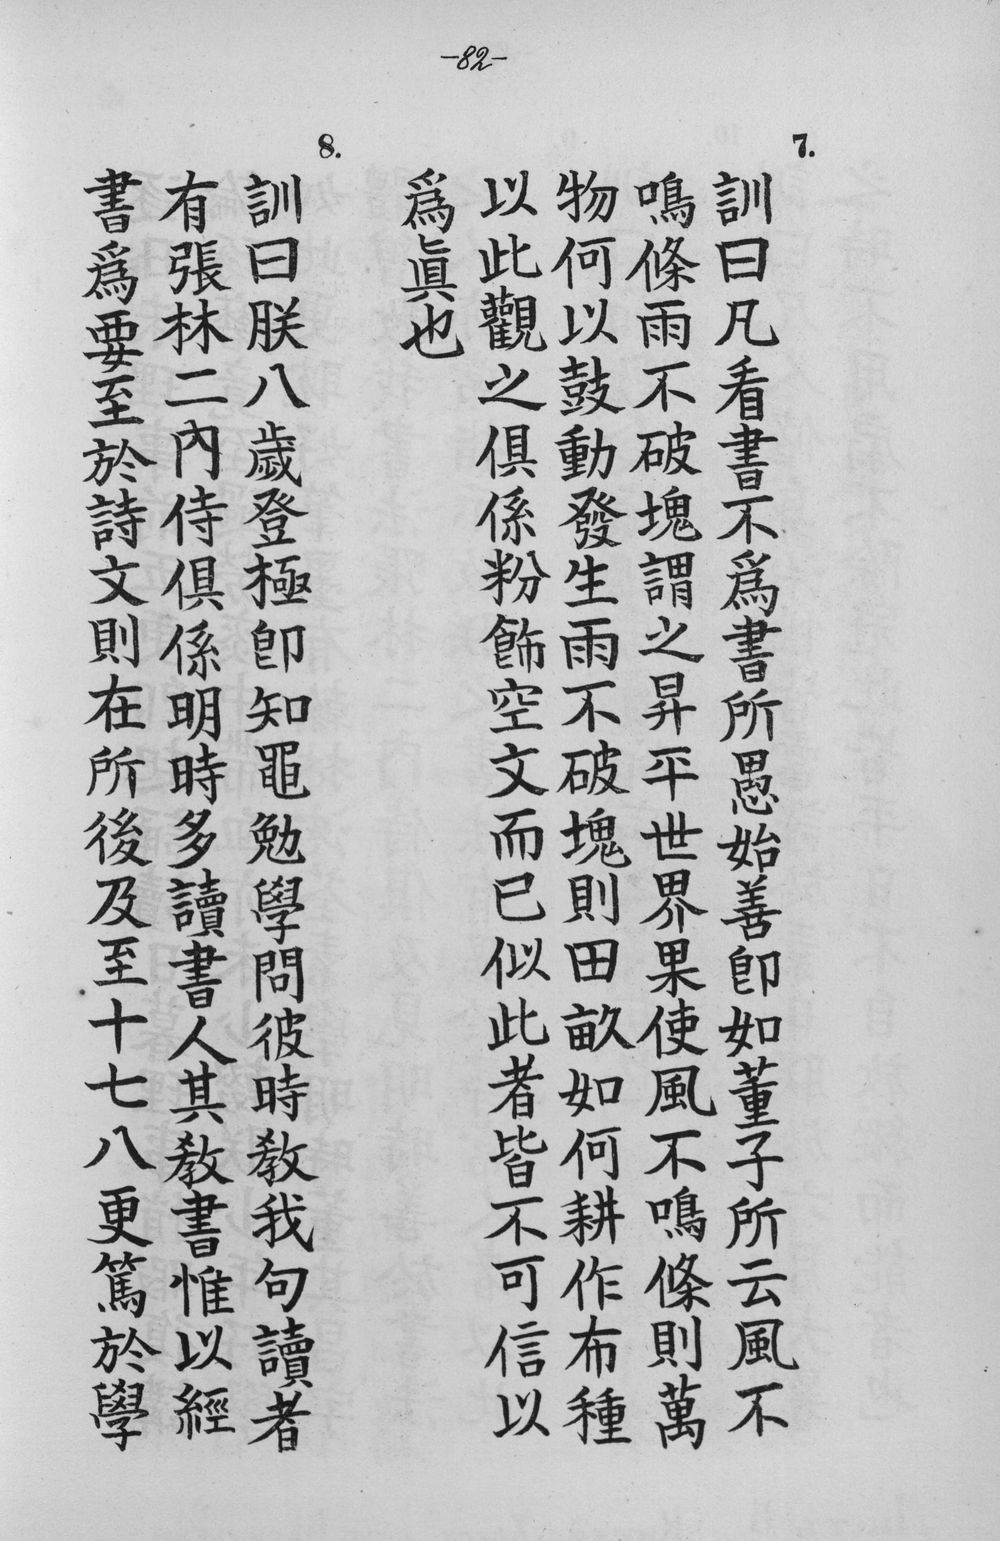 -82-
7.
訓曰凡看書不爲書所愚始善卽如董子所云風不
鳴條雨不破塊謂之昇平世界果使風不鳴條則萬
物何以鼓動發生雨不破塊則田畝如何耕作布種
以此觀之俱係粉飾空文而已似此者皆不可信以
爲眞也
8.
訓曰朕八歲登極卽知黽勉學問彼時教我句讀者
有張林二內侍俱係明時多讀書人其教書惟以經
書爲要至於詩文則在所後及至十七八更篤於學